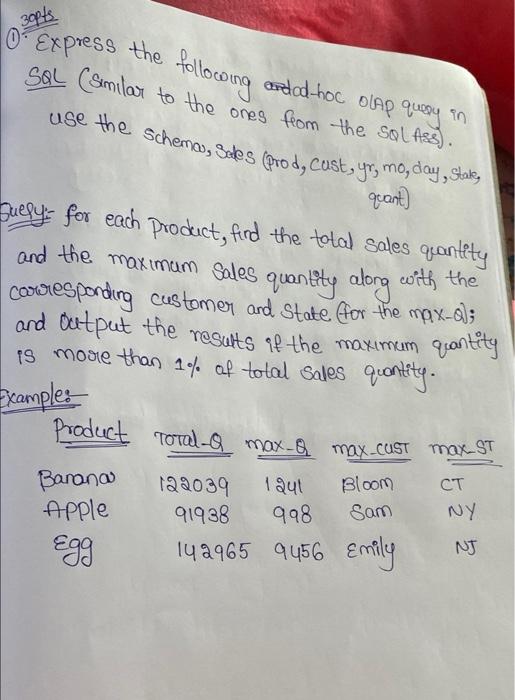 30pts
① Express the following ad-hoc OLAP query in
SQL (Similar to the ones from the SQL Ass).
use the schema, Sales (prod, cust, yr, mo, day, state,
quant)
Query:- for each product, find the total sales quantity
and the maximum sales quantity along with the
corresponding customer and state (for the max-Q);
and output the results if the maximum quantity
is more than 1% of total sales quantity.
Example:-
Product TOTAL-Q max-Q max-CUST max-ST
Banana 122039 1241 Bloom CT
Apple 91938 998 Sam NY
Egg 142965 9456 Emily NJ